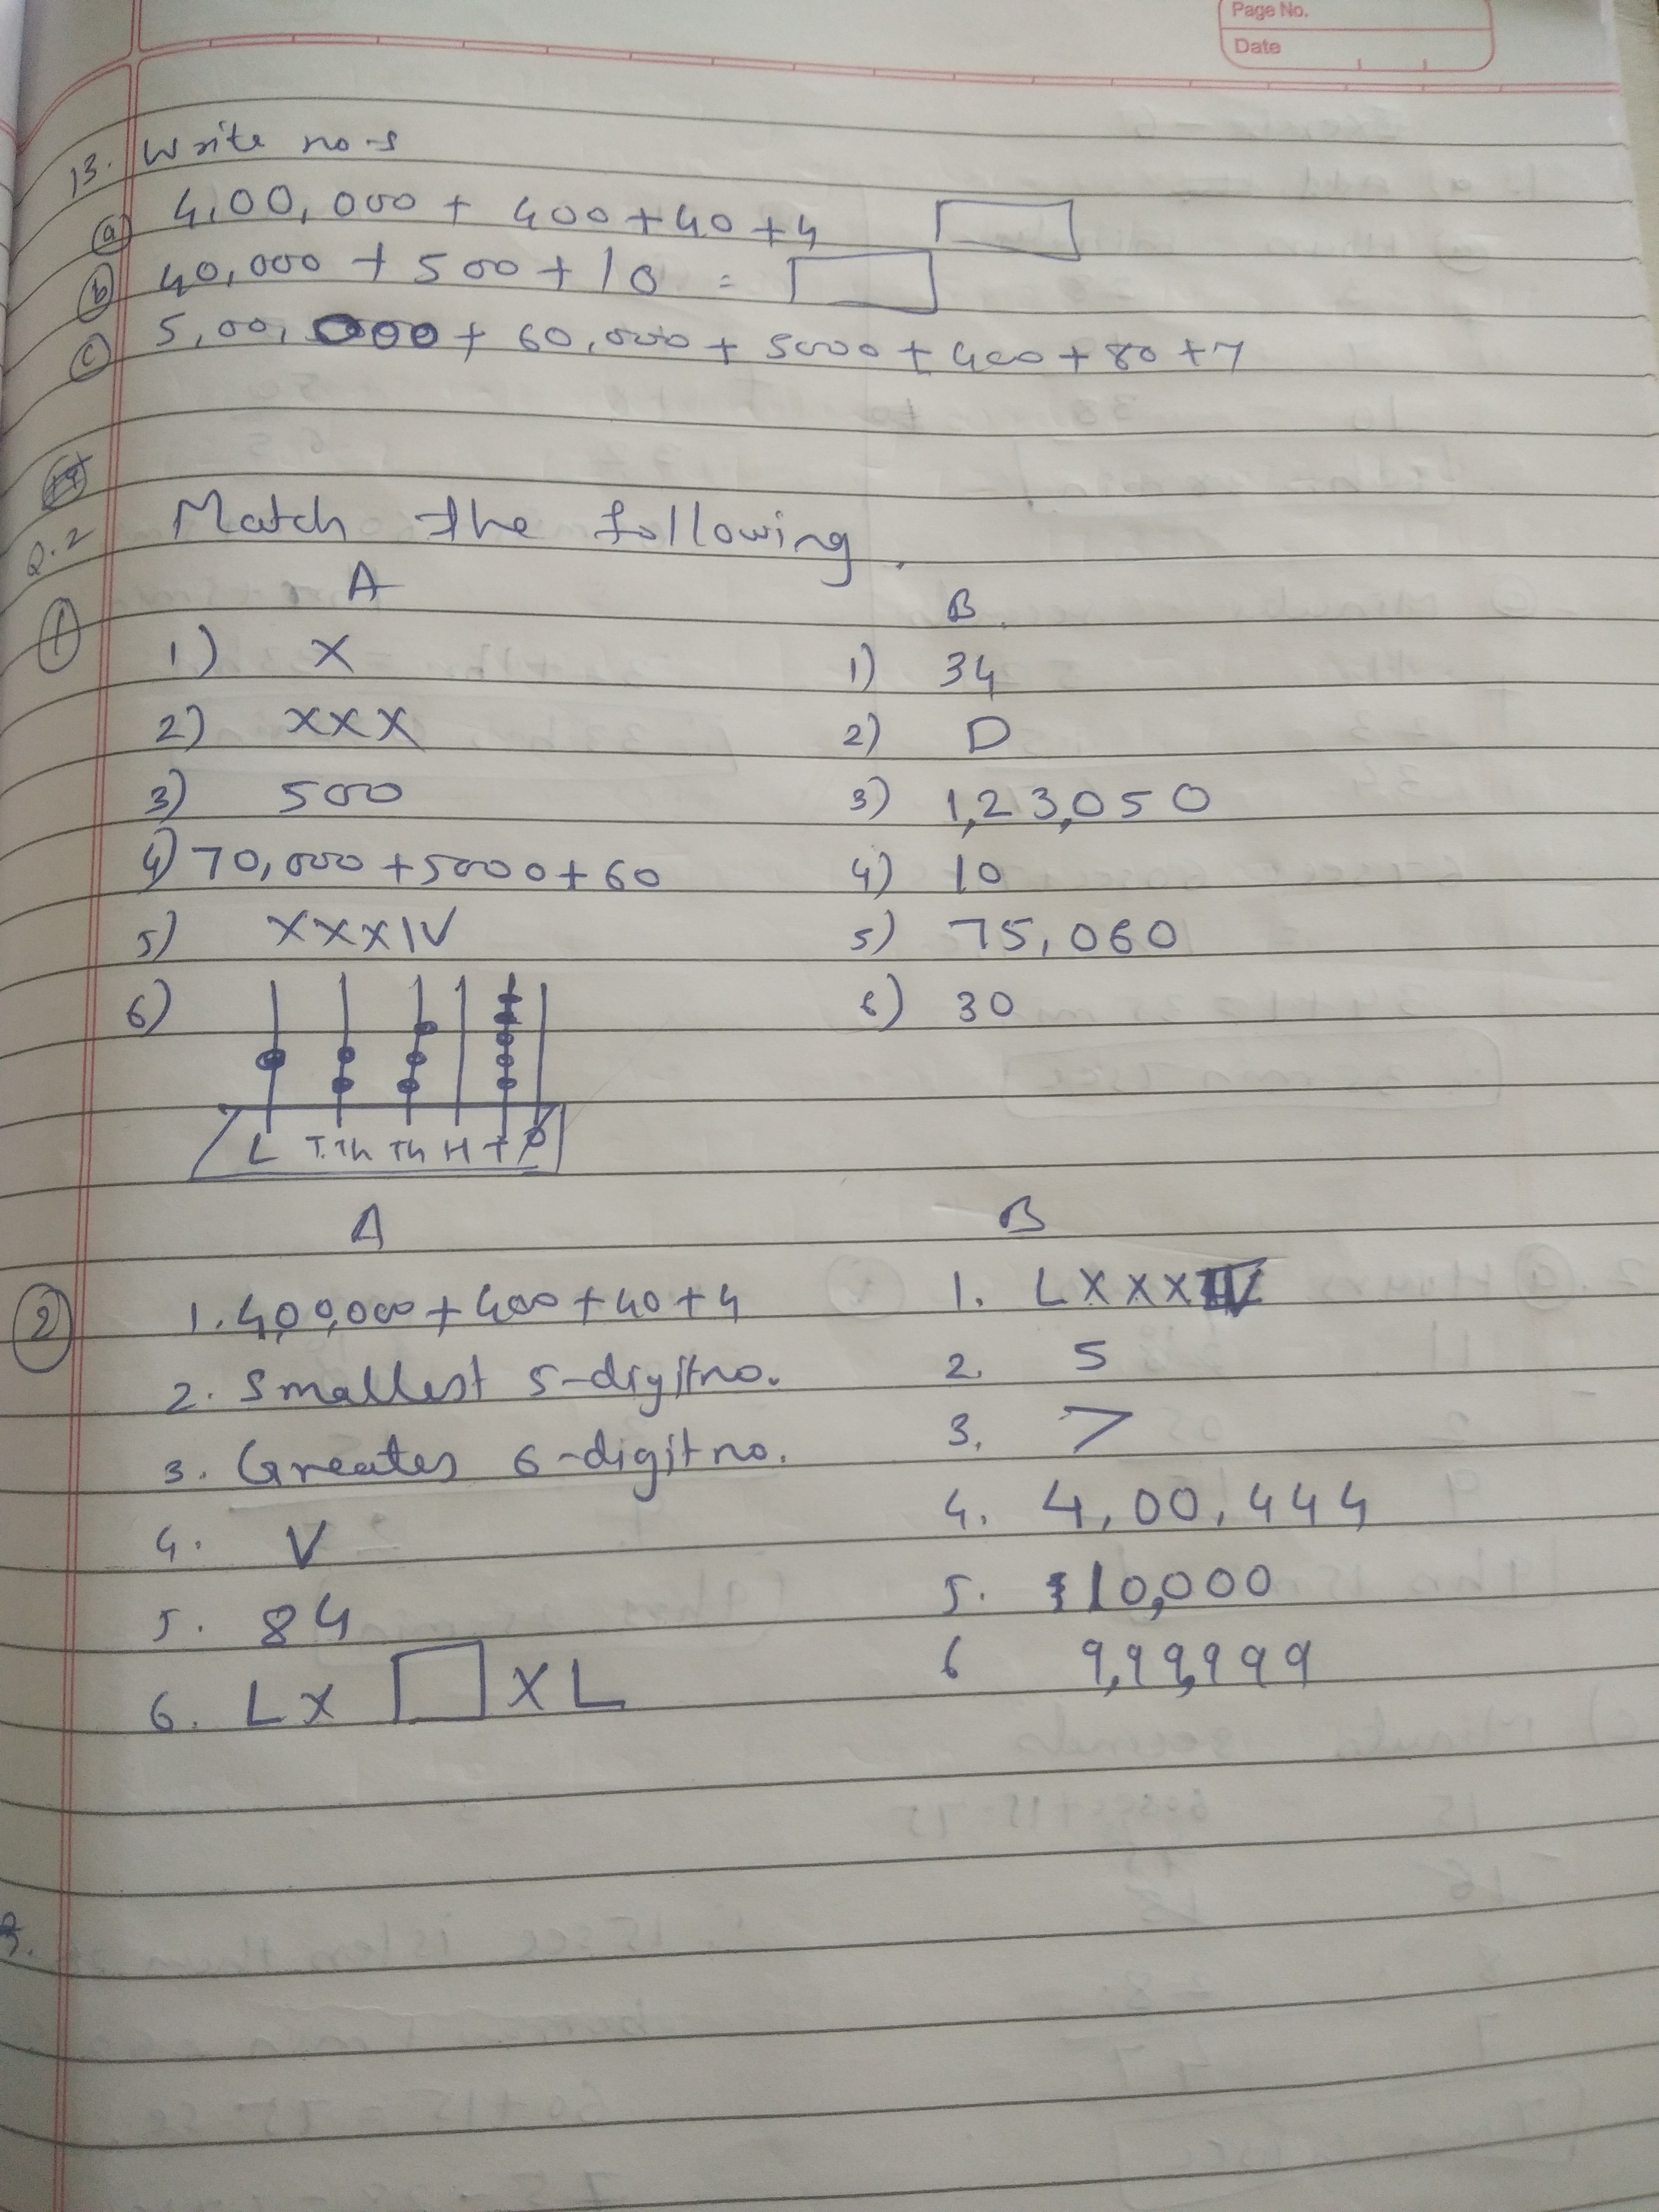 Page No.
Date
13. Write no-s
(a) 4,00,000 + 400 + 40 + 4
(b) 40,000 + 500 + 10 =
(c) 5,00,000 + 60,000 + 5000 + 400 + 80 + 7
Q.2 Match the following.
A B.
(1)
1) X 1) 34
2) XXX 2) D
3) 500 3) 1,23,050
4) 70,000 + 5000 + 60 4) 10
5) XXXIV 5) 75,060
6) 6) 30
L T.Th Th H T O
A B
(2) 1. 4,00,000 + 400 + 40 + 4 1. LXXXIV
2. Smallest 5-digit no. 2. 5
3. Greates 6-digit no. 3. >
4. V 4. 4,00,444
5. 84 5. 10,000
6. LX XL 6 9,99,999
3.